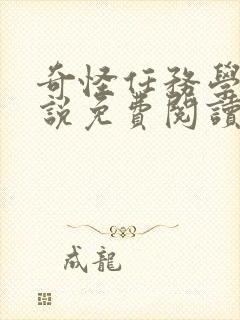 奇怪任務學
說免費閱讀
成龍